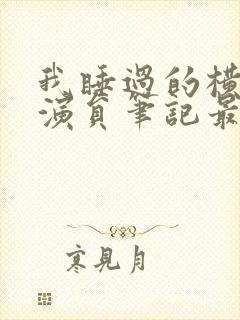 我睡過的橫
演員筆記最
寒見月